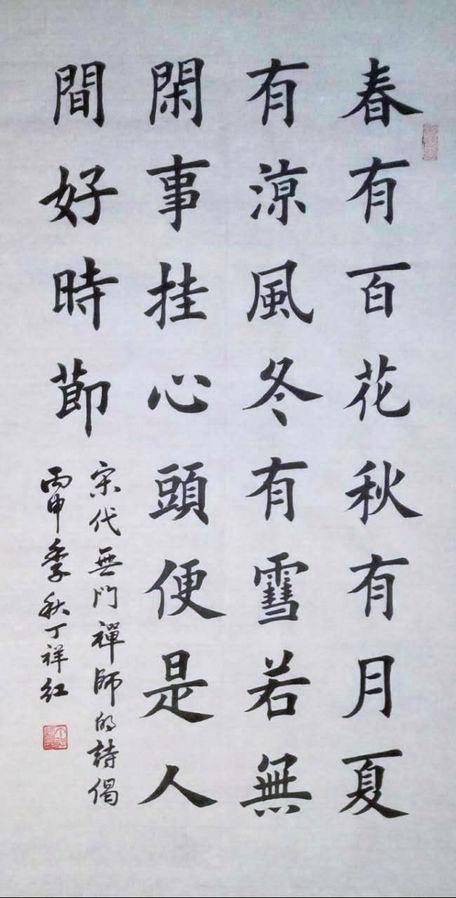 春有百花秋有月夏
有涼風冬有雪若無
閑事挂心頭便是人
間好時節
宋代無門禪師的詩偈
丙申季秋丁祥红